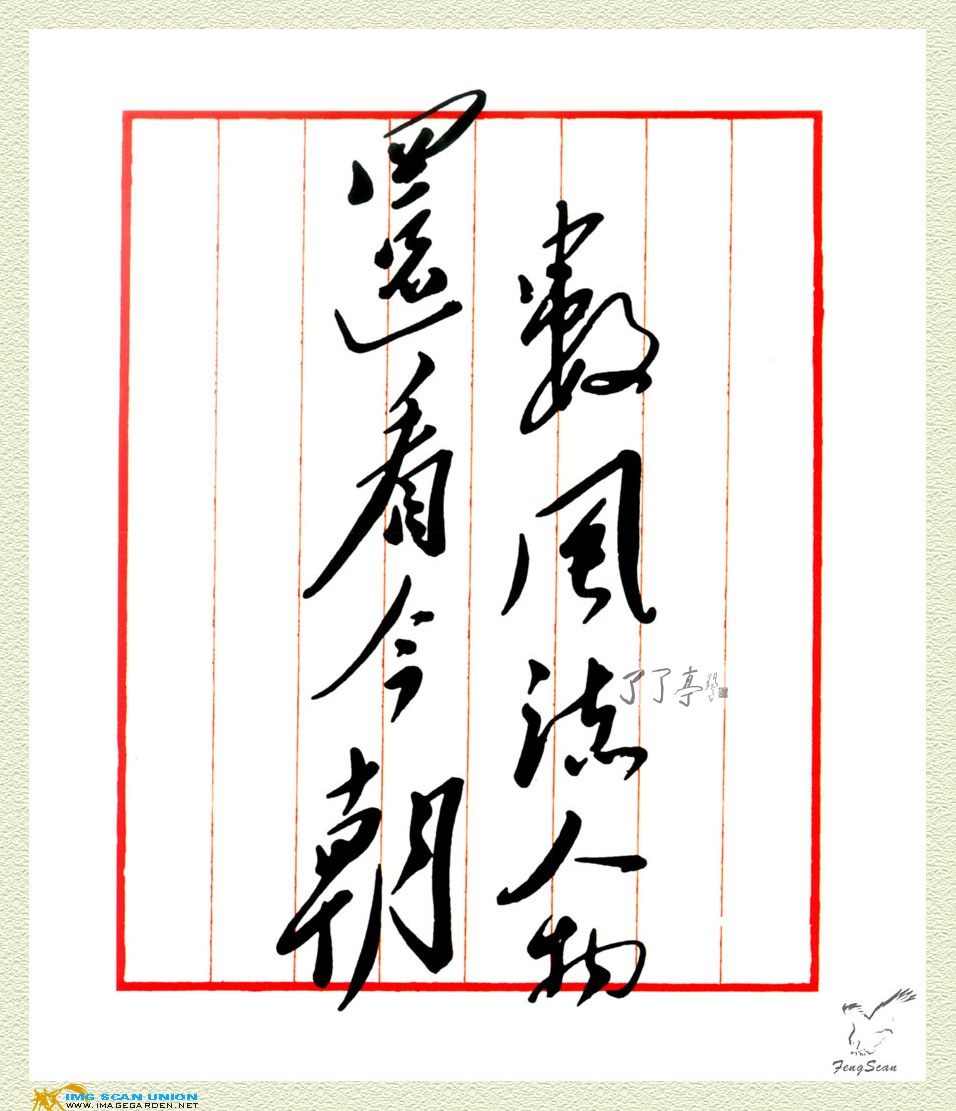 數風流人物
還看今朝
了了亭
FengScan
IMG SCAN UNION
WWW.IMAGEGARDEN.NET